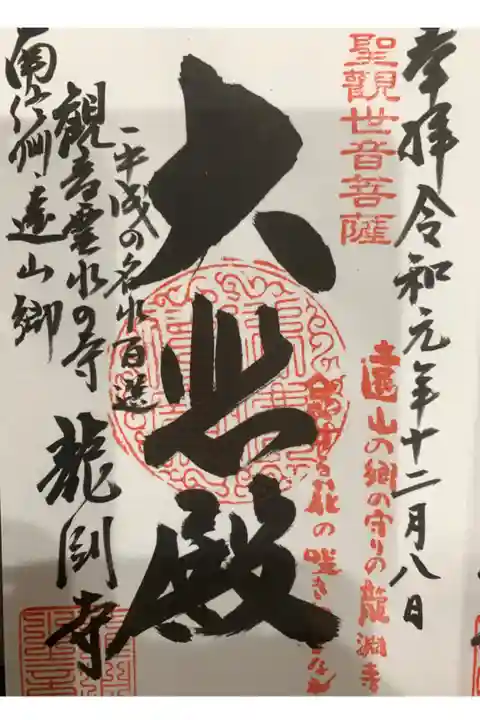 奉拝 令和元年十二月八日
聖観世音菩薩
遠山の郷の守りの龍淵寺
花の咲き
大悲殿
平成の名水百選
観音霊水の寺 龍淵寺
南信州・遠山郷